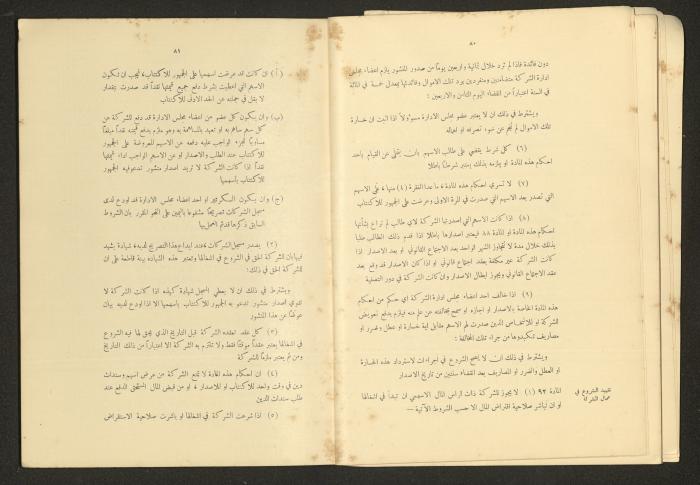 ٨٠
دون فائدة فاذا لم ترد خلال ثمانية واربعين يوماً من صدور المنشور يلزم اعضاء مجلس
ادارة الشركة متضامنين ومنفردين برد تلك الاموال وفائدتها بمعدل خمسة في المائة
في السنة اعتباراً من انقضاء اليوم الثامن والاربعين :
ويشترط في ذلك ان لا يعتبر عضو مجلس الادارة مسؤولاً اذا اثبت ان خسارة
تلك الاموال لم تنجم عن سوء تصرفه او اهماله
(٦) كل شرط يقضي على طالب الاسهم بان يتخلى عن القيام باحد
احكام هذه المادة او يلزمه بذلك يعتبر شرطاً باطلاً
(٧) لا تسري احكام هذه المادة ، ما عدا الفقرة (٨) منها ، على الاسهم
التي تصدر بعد الاسهم التي صدرت في المرة الاولى وعرضت على الجمهور للاكتتاب
(٨) اذا كانت الاسهم التي اصدرتها الشركة لاي طالب لم تراع بشأنها
احكام هذه المادة او المادة ٨٨ فيعتبر اصدارها باطلاً اذا قدم ذلك الطالب طلباً
بذلك خلال مدة لا تتجاوز الشهر الواحد بعد الاجتماع القانوني او بعد الاصدار اذا
كانت الشركة غير مكلفة بعقد اجتماع قانوني او اذا كان الاصدار قد وقع بعد
عقد الاجتماع القانوني ويجوز ابطال الاصدار وان كانت الشركة في دور التصفية
(٩) اذا خالف احد اعضاء مجلس ادارة الشركة اي حكم من احكام
هذه المادة الخاصة بالاصدار او اجازه او سمح بمخالفته عن علم منه فيلزم بدفع تعويض
للشركة او للاشخاص الذين صدرت لهم الاسهم مقابل اية خسارة او عطل وضرر او
مصاريف تكبدوها من جراء تلك المخالفة :
ويشترط في ذلك ان لا يصح الشروع في اجراءات لاسترداد هذه الخسارة
او العطل والضرر او المصاريف بعد انقضاء سنتين من تاريخ الاصدار
تقييد الشروع في
المادة ٩٢ (١) لا يجوز للشركة ذات الرأس المال الاسهمي ان تبدأ في اشغالها
او ان تباشر صلاحية اقتراض المال الا حسب الشروط الآتية —
٨١
(أ) ان كانت قد عرضت اسهمها على الجمهور للاكتتاب ، فيجب ان تكون
الاسهم التي اعطيت بشرط دفع جميع قيمتها نقداً قد صدرت بمقدار
لا يقل في جملته عن الحد الادنى للاكتتاب
(ب) وان يكون كل عضو من اعضاء مجلس الادارة قد دفع للشركة عن
كل سهم ساهم به او تعهد بالمساهمة به وهو ملزم بدفع قيمته نقداً مبلغاً
مساوياً للجزء الواجب عليه دفعه عن الاسهم المعروضة على الجمهور
للاكتتاب عند الطلب والاصدار او عن الاسهم الواجب اداء قيمتها
نقداً اذا كانت الشركة لا تريد اصدار منشور تدعو فيه الجمهور
للاكتتاب باسهمها
(ج) وان يكون السكرتير او احد اعضاء مجلس الادارة قد اودع لدى
مسجل الشركات تصريحاً مشفوعاً باليمين على النحو المقرر بان الشروط
السابق ذكرها قد تم العمل بها
(٢) يصدر مسجل الشركات ، عند ايداع هذا التصريح لديه ، شهادة يشهد
فيها بان للشركة الحق في الشروع في اشغالها وتعتبر هذه الشهادة بينة قاطعة على ان
للشركة الحق في ذلك :
ويشترط في ذلك ان لا يعطي المسجل شهادة كهذه اذا كانت الشركة لا
تنوي اصدار منشور تدعو به الجمهور للاكتتاب باسهمها الا اذا اودع لديه بيان
عوضاً عن هذا المنشور
(٣) كل عقد تعقده الشركة قبل التاريخ الذي يحق لها فيه الشروع
في اشغالها يعتبر عقداً موقتاً فقط ولا تلتزم به الشركة الا اعتباراً من ذلك التاريخ
ومن ثم يعتبر ملزماً للشركة
(٤) ان احكام هذه المادة لا تمنع الشركة من عرض اسهم وسندات
دين في وقت واحد للاكتتاب او للاصدار ، او من قبض المال المستحق الدفع عند
طلب سندات الدين
(٥) اذا شرعت الشركة في اشغالها او باشرت صلاحية الاستقراض